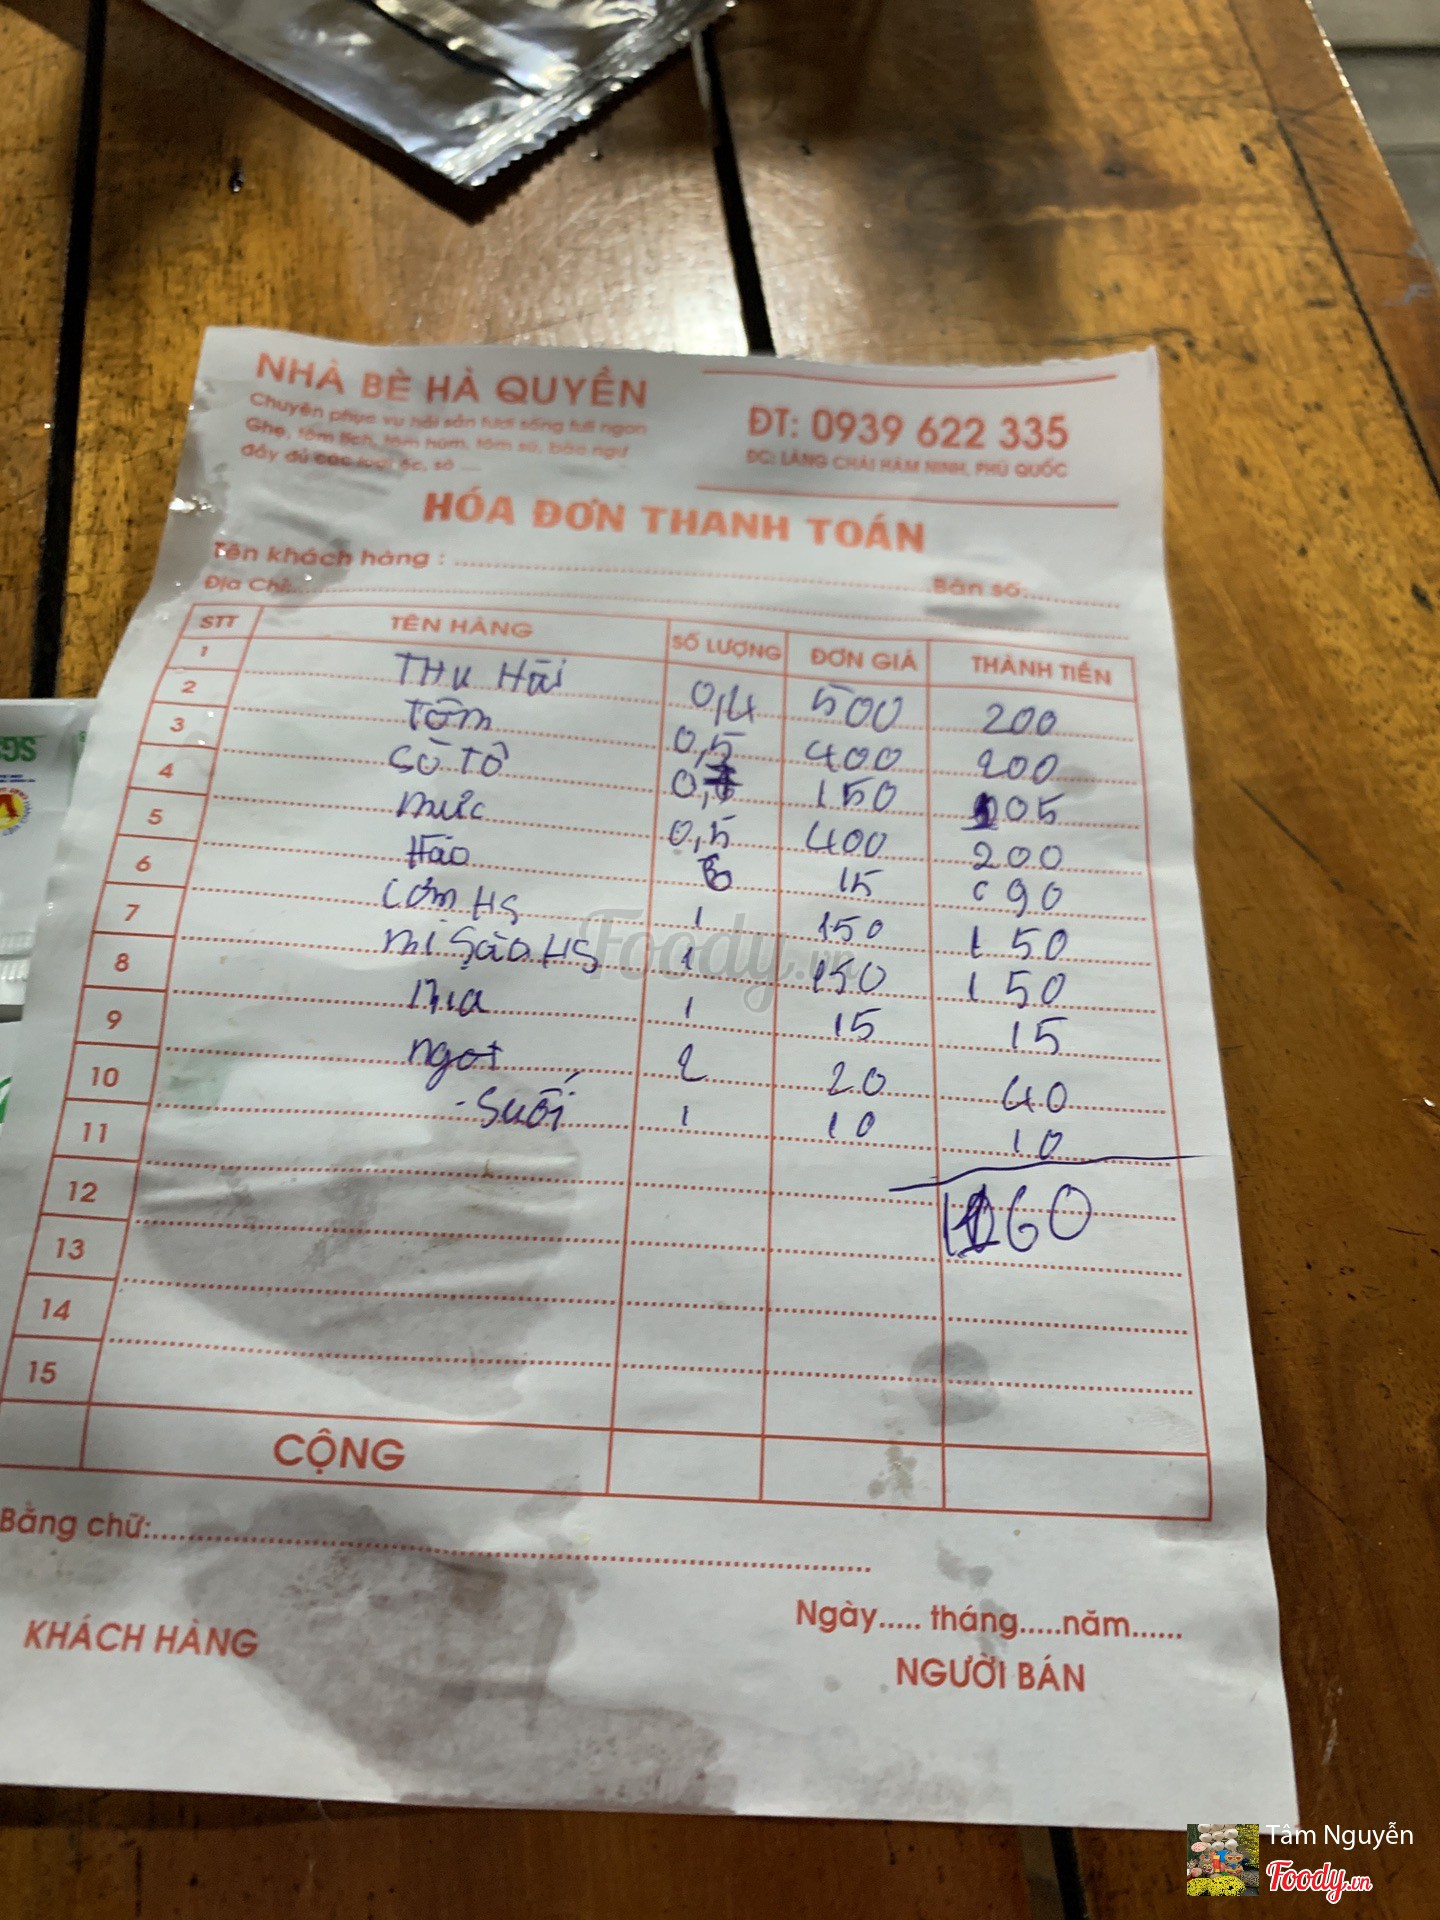 NHÀ BÈ HÀ QUYỀN
Chuyên phục vụ hải sản tươi sống tươi ngon
Ghẹ, tôm tích, tôm hùm, tôm sú, bào ngư
đầy đủ các loại ốc, sò ....
ĐT: 0939 622 335
ĐC: LÀNG CHÀI HÀM NINH, PHÚ QUỐC
HÓA ĐƠN THANH TOÁN
Tên khách hàng : Bàn số:
Địa Chỉ:
STT TÊN HÀNG SỐ LƯỢNG ĐƠN GIÁ THÀNH TIỀN
1 THU Hải 0,4 500 200
2 Tôm 0,5 400 200
3 Sò Tô 0,7 150 105
4 mực 0,5 400 200
5 Hào 6 15 90
6 Cơm HS 1 150 150
7 mì Sào HS 1 150 150
8 1 15 15
9 ngọt 2 20 40
10 Suối 1 10 10
11
12 1160
13
14
15
CỘNG
Bằng chữ:
Ngày..... tháng.....năm......
KHÁCH HÀNG NGƯỜI BÁN
Foody.vn
SGS
Tâm Nguyễn
Foody.vn